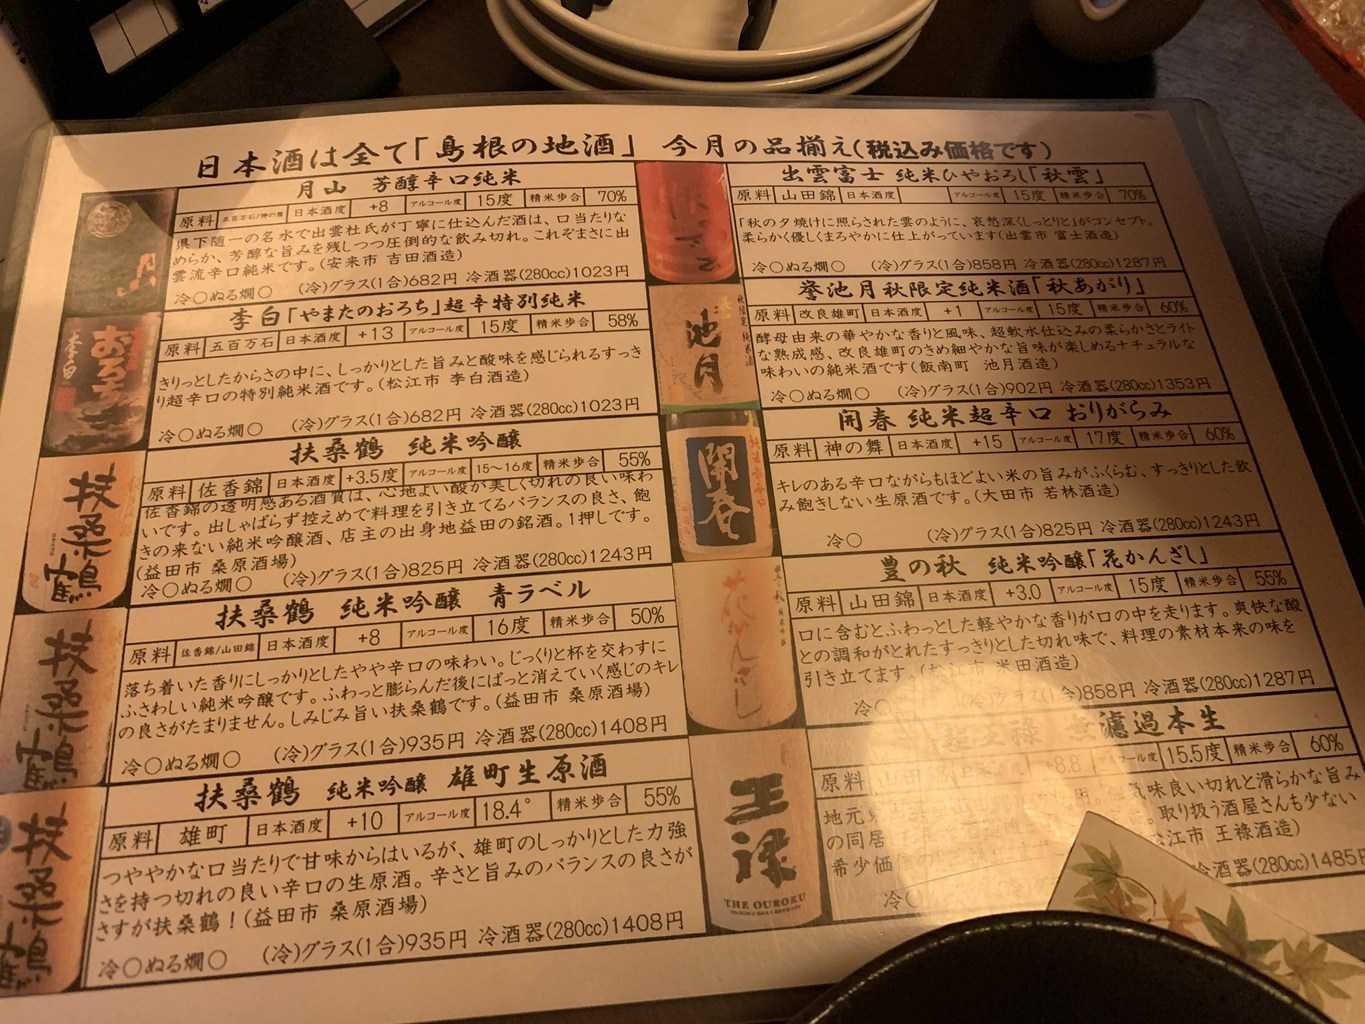 日本酒は全て「島根の地酒」 今月の品揃え(税込み価格です)
月山 芳醇辛口純米
原料 日本酒度 +8 アルコール度 15度 精米歩合 70%
県下随一の名水で出雲杜氏が丁寧に仕込んだ酒は、口当たりな
めらか、芳醇な旨みを残しつつ圧倒的な飲み切れ。これぞまさに出
雲流辛口純米です。(安来市 吉田酒造)
冷○ぬる燗○ (冷)グラス(1合)682円 冷酒器(280cc)1023円
李白「やまたのおろち」超辛特別純米
原料 五百万石 日本酒度 +13 アルコール度 15度 精米歩合 58%
きりっとしたからさの中に、しっかりとした旨みと酸味を感じられるすっき
り超辛口の特別純米酒です。(松江市 李白酒造)
冷○ぬる燗○ (冷)グラス(1合)682円 冷酒器(280cc)1023円
扶桑鶴 純米吟醸
原料 佐香錦 日本酒度 +3.5度 アルコール度 15～16度 精米歩合 55%
佐香錦の透明感ある酒質は、心地よい酸が美しく切れの良い味わ
いです。出しゃばらず控えめで料理を引き立てるバランスの良さ、飽
きの来ない純米吟醸酒、店主の出身地益田の銘酒。1押しです。
(益田市 桑原酒場)
冷○ぬる燗○ (冷)グラス(1合)825円 冷酒器(280cc)1243円
扶桑鶴 純米吟醸 青ラベル
原料 佐香錦/山田錦 日本酒度 +8 アルコール度 16度 精米歩合 50%
落ち着いた香りにしっかりとしたやや辛口の味わい。じっくりと杯を交わすに
ふさわしい純米吟醸です。ふわっと膨らんだ後にぱっと消えていく感じのキレ
の良さがたまりません。しみじみ旨い扶桑鶴です。(益田市 桑原酒場)
冷○ぬる燗○ (冷)グラス(1合)935円 冷酒器(280cc)1408円
扶桑鶴 純米吟醸 雄町生原酒
原料 雄町 日本酒度 +10 アルコール度 18.4° 精米歩合 55%
つややかな口当たりで甘味からはいるが、雄町のしっかりとした力強
さを持つ切れの良い辛口の生原酒。辛さと旨みのバランスの良さが
さすが扶桑鶴！(益田市 桑原酒場)
冷○ぬる燗○ (冷)グラス(1合)935円 冷酒器(280cc)1408円
出雲富士 純米ひやおろし「秋雲」
原料 山田錦 日本酒度 アルコール度 15度 精米歩合 70%
「秋の夕焼けに照らされた雲のように、哀愁深くしっとりと」がコンセプト。
柔らかく優しくまろやかに仕上がっています(出雲市 富士酒造)
冷○ぬる燗○ (冷)グラス(1合)858円 冷酒器(280cc)1287円
誉池月秋限定純米酒「秋あがり」
原料 改良雄町 日本酒度 +1 アルコール度 15度 精米歩合 60%
酵母由来の華やかな香りと風味、超軟水仕込みの柔らかさとライト
な熟成感、改良雄町のきめ細やかな旨味が楽しめるナチュラルな
味わいの純米酒です(飯南町 池月酒造)
冷○ぬる燗○ (冷)グラス(1合)902円 冷酒器(280cc)1353円
開春 純米超辛口 おりがらみ
原料 神の舞 日本酒度 +15 アルコール度 17度 精米歩合 60%
キレのある辛口ながらもほどよい米の旨みがふくらむ、すっきりとした飲
み飽きしない生原酒です。(大田市 若林酒造)
冷○ (冷)グラス(1合)825円 冷酒器(280cc)1243円
豊の秋 純米吟醸「花かんざし」
原料 山田錦 日本酒度 +3.0 アルコール度 15度 精米歩合 55%
口に含むとふわっとした軽やかな香りが口の中を走ります。爽快な酸
との調和がとれたすっきりとした切れ味で、料理の素材本来の味を
引き立てます。(松江市 米田酒造)
冷○ (1合)858円 冷酒器(280cc)1287円
濾過本生
原料 山田 +8.8 アルコール度 15.5度 精米歩合 60%
地元 気味良い切れと滑らかな旨み
の同居 。取り扱う酒屋さんも少ない
希少価値 松江市 王祿酒造)
冷○ 冷酒器(280cc)1485円
月
おろち
李白
扶桑鶴
扶桑鶴
扶桑鶴
池月
開春
花かんざし
王祿
THE OUROKU